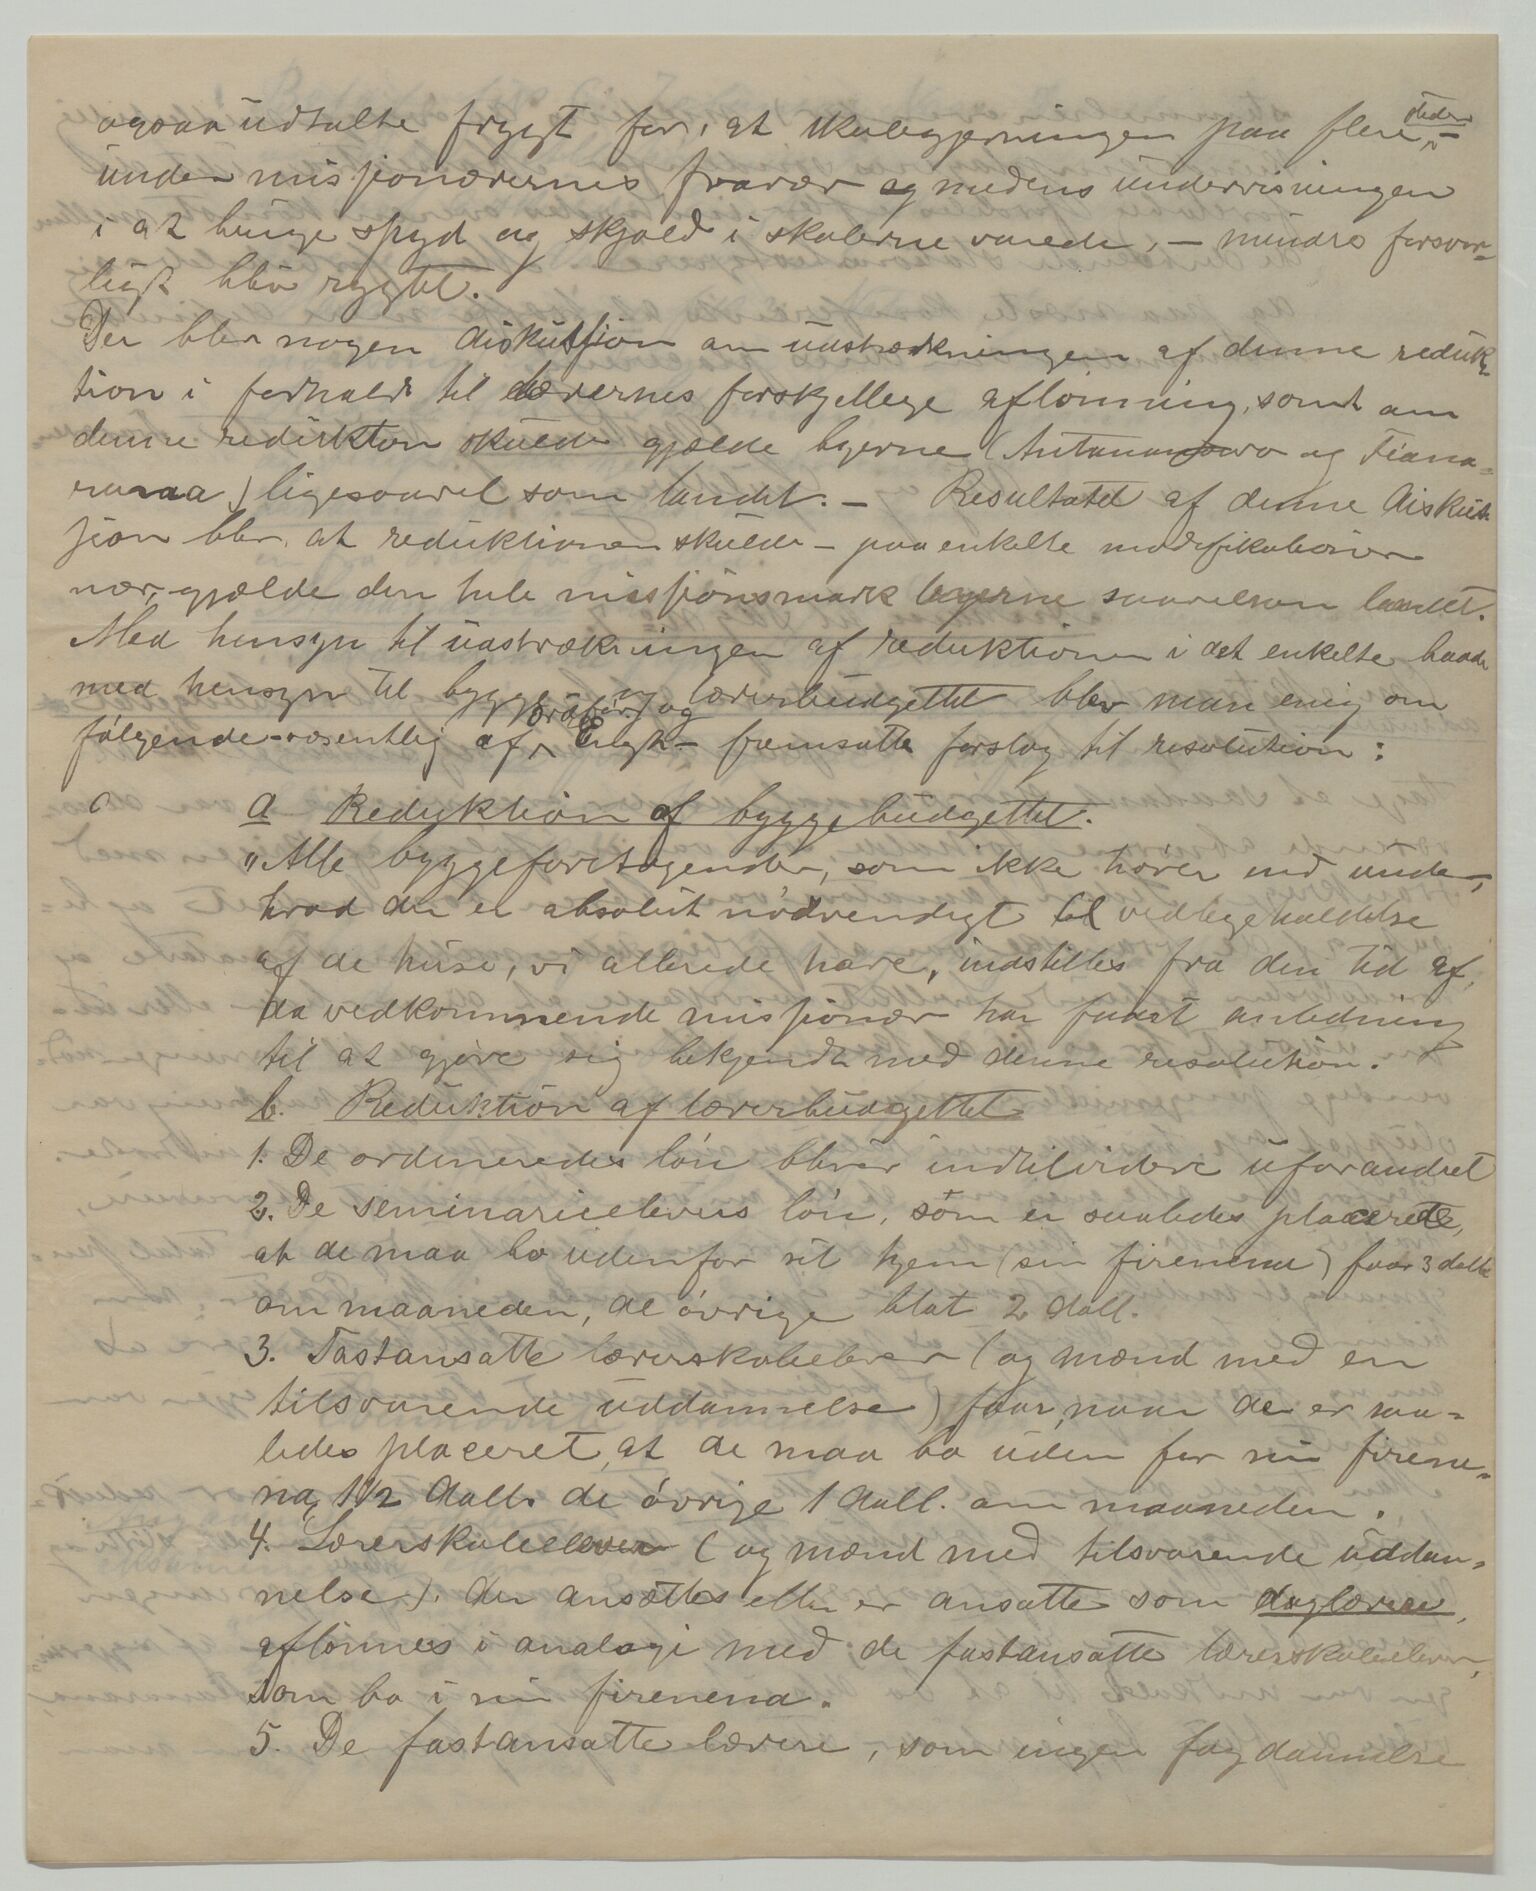 ogsaa udtalte frygt for, at skolegjerningen paa flere steder –
under missjonærernes fravær og medens undervisningen
i at bruge spyd og skjold i skolerne varede, – mindre forsvar-
ligt blev rygtet.
Der blev nogen diskussjon om udstrækningen af denne reduk-
tion i forhold til lærernes forskjellige aflønning, samt om
denne reduktion skulde gjælde byerne (Antananarivo og Fiana-
rana) ligesaavel som landet. – Resultatet af denne diskus-
sjon blev, at reduktionen skulde – paa enkelte modifikationer
nær, – gjælde den hele missjonsmark byerne saavelsom landet.
Med hensyn til udstrækningen af reduktionen i det enkelte baade
med hensyn til bygge- og lærerbudgettet blev man enig om
følgende – væsentlig af og Engh – fremsatte forslag til resolution:
a Reduktion af byggebudgettet.
"Alle byggeforetagender, som ikke hører ind under,
hvad der er absolut nødvendigt til vedligeholdelse
af de huse, vi allerede have, indstilles fra den tid af,
da vedkommende missjonær har faaet anledning
til at gjøre sig bekjendt med denne resolution.
b. Reduktion af lærerbudgettet
1. De ordineredes løn bliver indtilvidere uforandret
2. De seminarieelevers løn, som er saaledes placerede,
at de maa bo udenfor sit hjem (sin firenena) faar 3 doll.
om maaneden, de øvrige blot 2 doll.
3. Fastansatte lærerskoleelever (og mænd med en
tilsvarende uddannelse) faar, naar de er saa-
ledes placeret, at de maa bo uden for sin firene-
na, 1 1/2 doll. de øvrige 1 doll. om maaneden.
4. Lærerskoleelever (og mænd med tilsvarende uddan-
nelse), der ansættes eller er ansatte som daglærere,
aflønnes i analogi med de fastansatte lærerskoleelever,
som bo i sin firenena.
5. De fastansatte lærere, som ingen fagdannelse